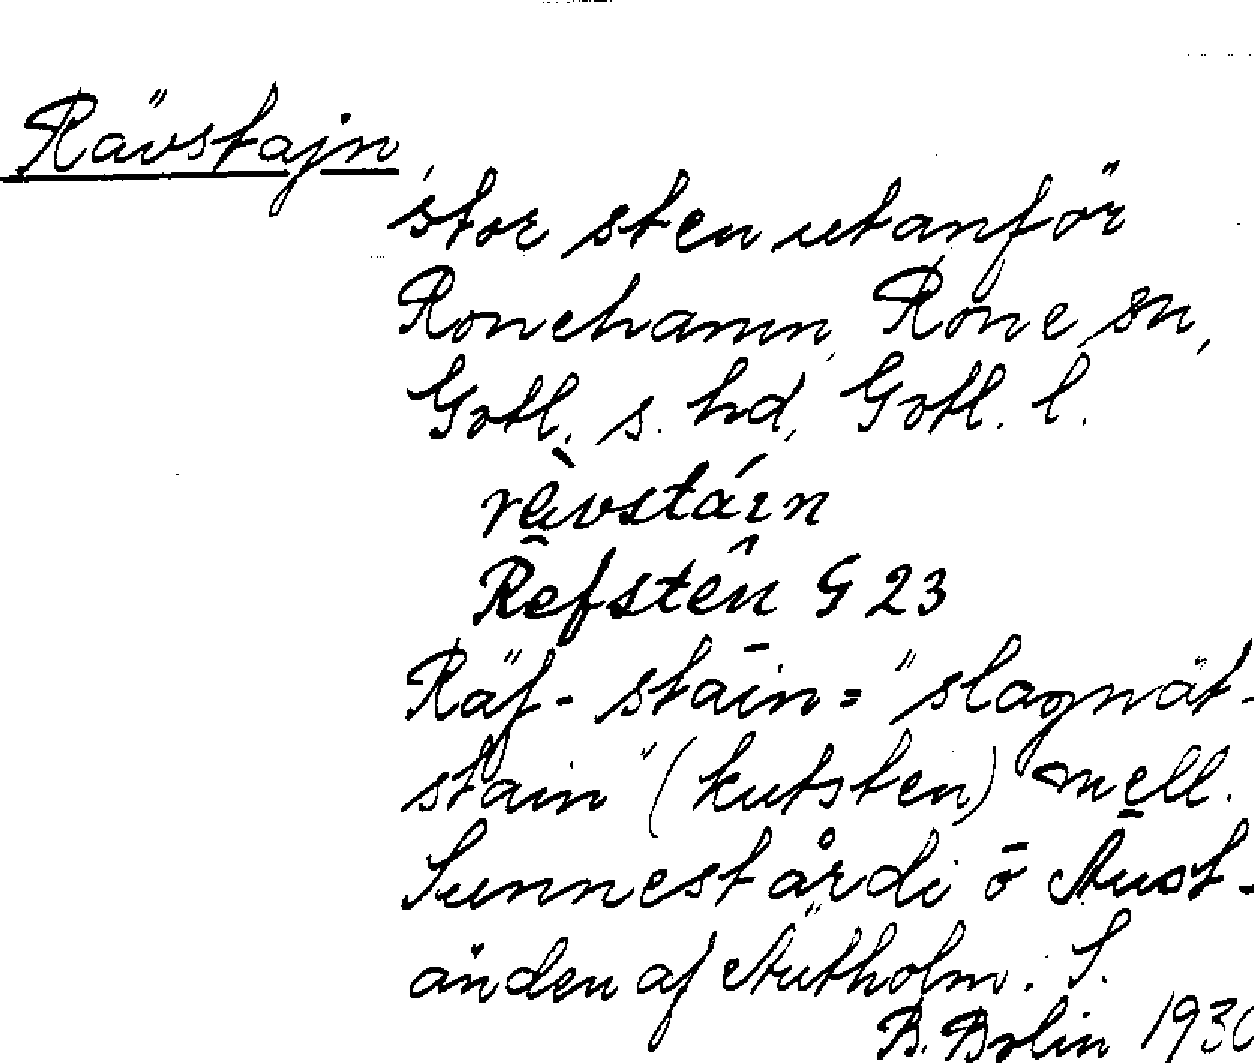 Rävstajn
stor sten utanför
Ronehamn, Rone sn,
Gotl. s. hd, Gotl. l.
rè̱vstáɪn
Refstên G 23
Räf- stāin = "slagnät-
stain" (kutsten) mell.
Sunnestårdi ō Aust-
änden af Autholm. S.
B. Bolin 1930